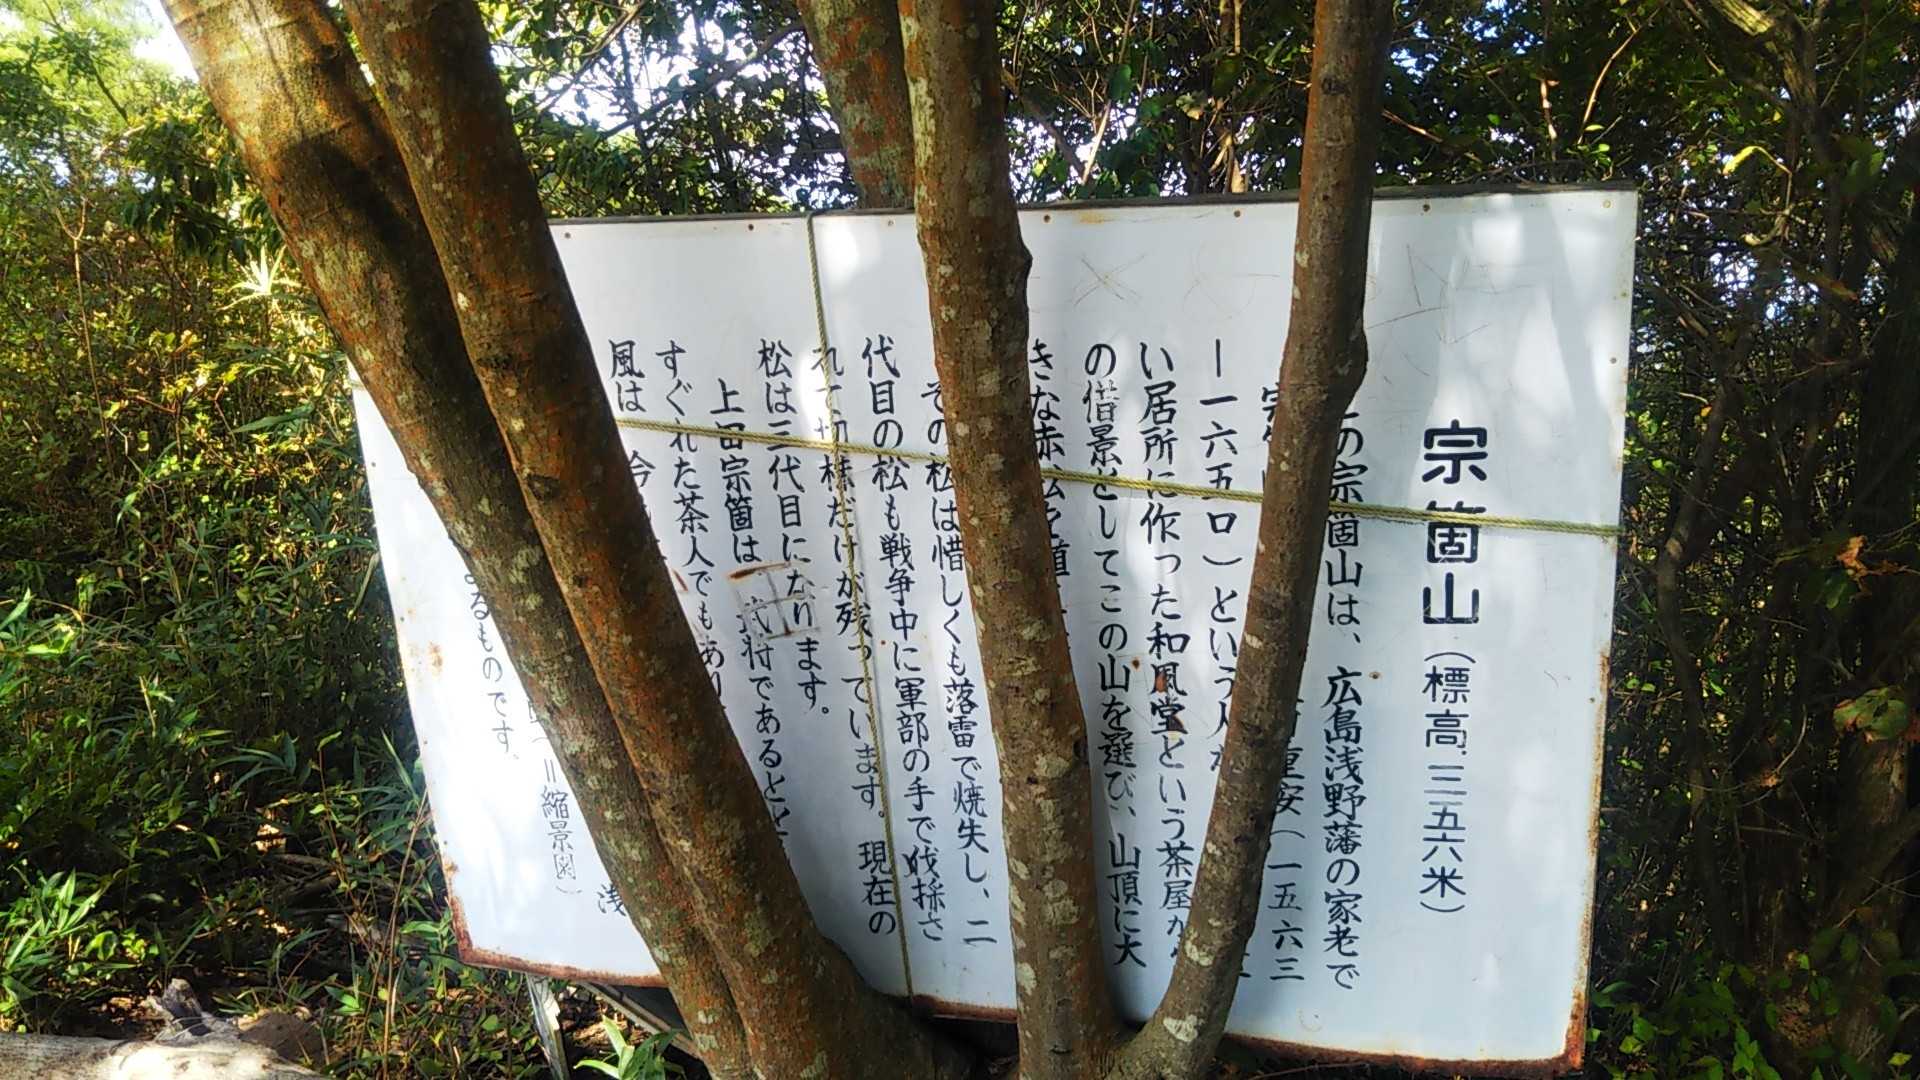 宗箇山（標高.三五六米）
の宗箇山は、広島浅野藩の家老で
重安（一五六三
ー一六五ロ）という人が
い居所に作った和風堂という茶屋か
の借景としてこの山を選び、山頂に大
きな赤松を植
その松は惜しくも落雷で焼失し、二
代目の松も戦争中に軍部の手で伐採さ
れて切株だけが残っています。現在の
松は三代目になります。
上田宗箇は、武将であるとと
すぐれた茶人でもあり
風は 今 浅
（＝縮景園）
よるものです。